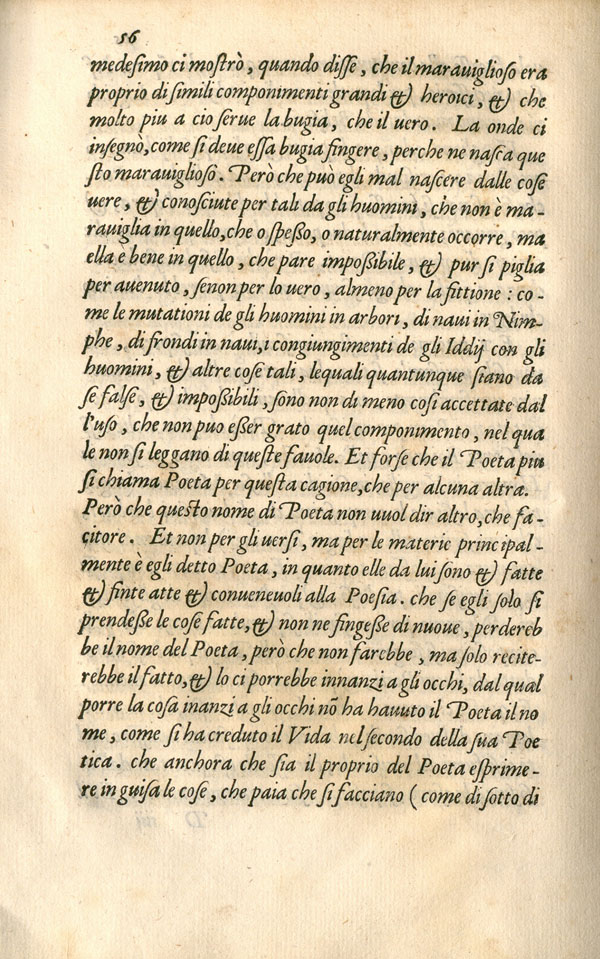 56
medesimo ci mostrò, quando disse, che il marauiglioso era
proprio di simili componimenti grandi & heroici, & che
molto piu a cio serue la bugia, che il uero. La onde ci
insegnò, come si deue essa bugia fingere, perche ne nasca que
sto marauiglioso. Però che può egli mal nascere dalle cose
uere, & conosciute per tali da gli huomini, che non è ma-
rauiglia in quello, che o speßo, o naturalmente occorre, ma
ella e bene in quello, che pare impoßibile, & pur si piglia
per auenuto, senon per lo uero, almeno per la fittione: co-
me le mutationi de gli huomini in arbori, di naui in Nim-
phe, di frondi in naui, i congiungimenti de gli Iddij con gli
huomini, & altre cose tali, lequali quantunque siano da
se false, & impoßibili, sono non di meno cosi accettate dal
l'uso, che non puo eßer grato quel componimento, nel qua
le non si leggano di queste fauole. Et forse che il Poeta piu
si chiama Poeta per questa cagione, che per alcuna altra.
Però che questo nome di Poeta non uuol dir altro, che fa-
citore. Et non per gli uersi, ma per le materie principal-
mente è egli detto Poeta, in quanto elle da lui sono & fatte
& finte atte & conueneuoli alla Poesia. che se egli solo si
prendeße le cose fatte, & non ne fingeße di nuoue, perdereb
be il nome del Poeta, però che non farebbe, ma solo recite-
rebbe il fatto, & lo ci porrebbe innanzi a gli occhi, dal qual
porre la cosa inanzi a gli occhi nõ ha hauuto il Poeta il no
me, come si ha creduto il Vida nel secondo della sua Poe
tica. che anchora che sia il proprio del Poeta esprime-
re in guisa le cose, che paia che si facciano (come di sotto di